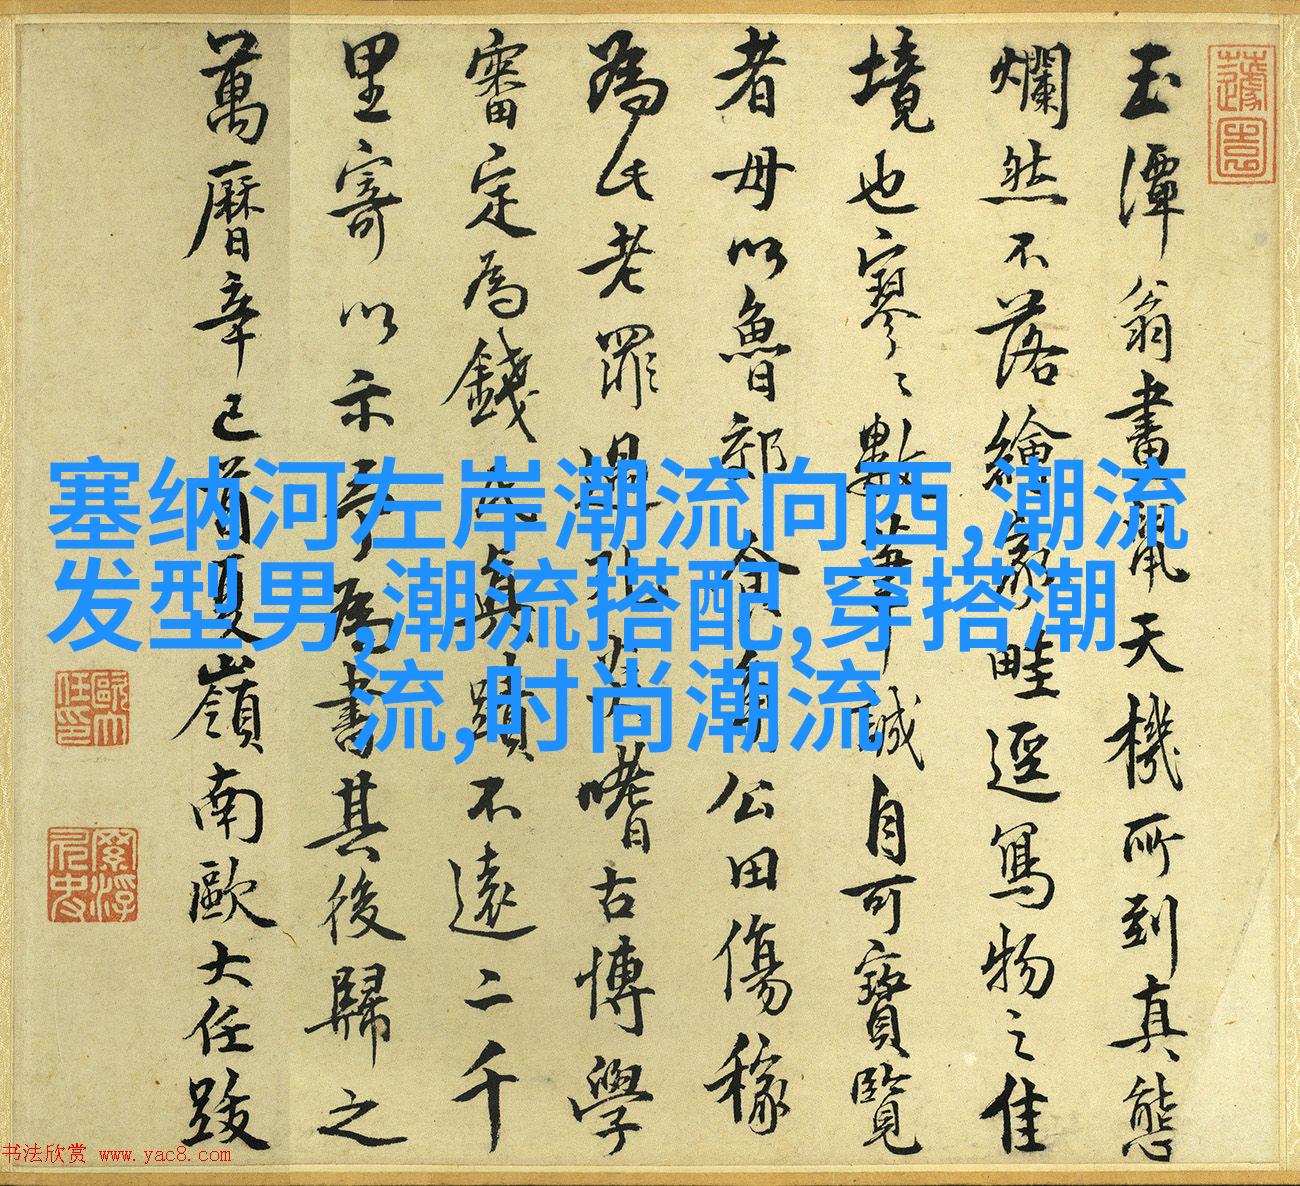 玉潭翁畫鼠天機所到真態
爛然不落繪家畦逕寫物之佳
境也寥〻數筆誠自可寶覽
者毋以魯郊食角公田傷稼
為此老罪過孔豐嗜古博學
審定為錢氏真蹟不遠二千
里寄以示予為書其後歸之
萬曆辛巳首夏嶺南歐大任跋
塞纳河左岸潮流向西,潮流
发型男,潮流搭配,穿搭潮
流,时尚潮流
歐大任印
书法欣赏 www.yac8.com